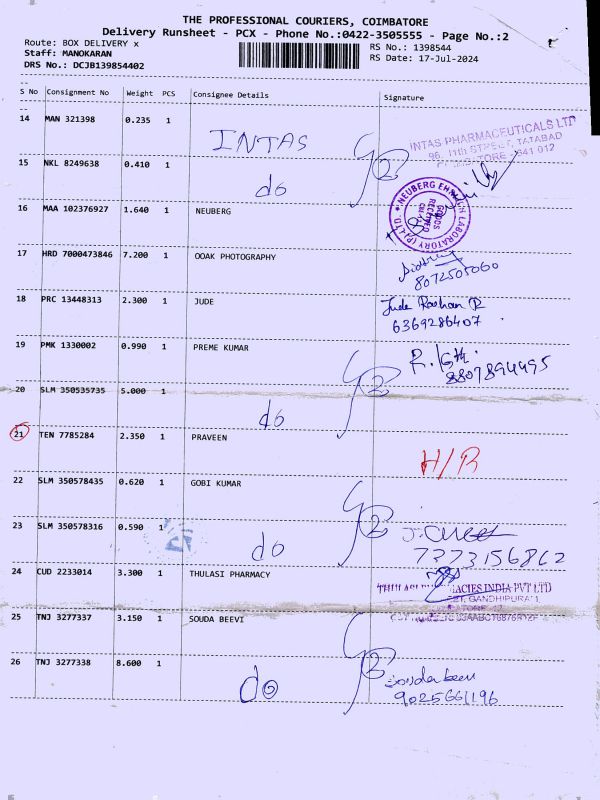 THE PROFESSIONAL COURIERS, COIMBATORE
Delivery Runsheet - PCX - Phone No.:0422-3505555 - Page No.:2
Route: BOX DELIVERY x
Staff: MANOKARAN
DRS No.: DCJB139854402
RS No.: 1398544
RS Date: 17-Jul-2024
S No Consignment No Weight PCS Consignee Details Signature
14 MAN 321398 0.235 1 INTAS
INTAS PHARMACEUTICALS LTD
96, 11th STREET, TATABAD
641 012
15 NKL 8249638 0.410 1 do
2
16 MAA 102376927 1.640 1 NEUBERG
NEUBERG EHRLICH LABORATORY (P) LTD.
GOODS
RECEIVED
17 HRD 7000473846 7.200 1 OOAK PHOTOGRAPHY
8072505060
18 PRC 13448313 2.300 1 JUDE
Jude Roshan R
6369286407
19 PMK 1330002 0.990 1 PREME KUMAR
8807894495
20 SLM 350535735 5.000 1 do
2
21 TEN 7785284 2.350 1 PRAVEEN H/R
22 SLM 350578435 0.620 1 GOBI KUMAR
23 SLM 350578316 0.590 1 do
2
7373156862
24 CUD 2233014 3.300 1 THULASI PHARMACY
THULASI PHARMACIES INDIA PVT LTD
GANDHIPURAM,
25 TNJ 3277337 3.150 1 SOUDA BEEVI
26 TNJ 3277338 8.600 1 do
2
9025661196